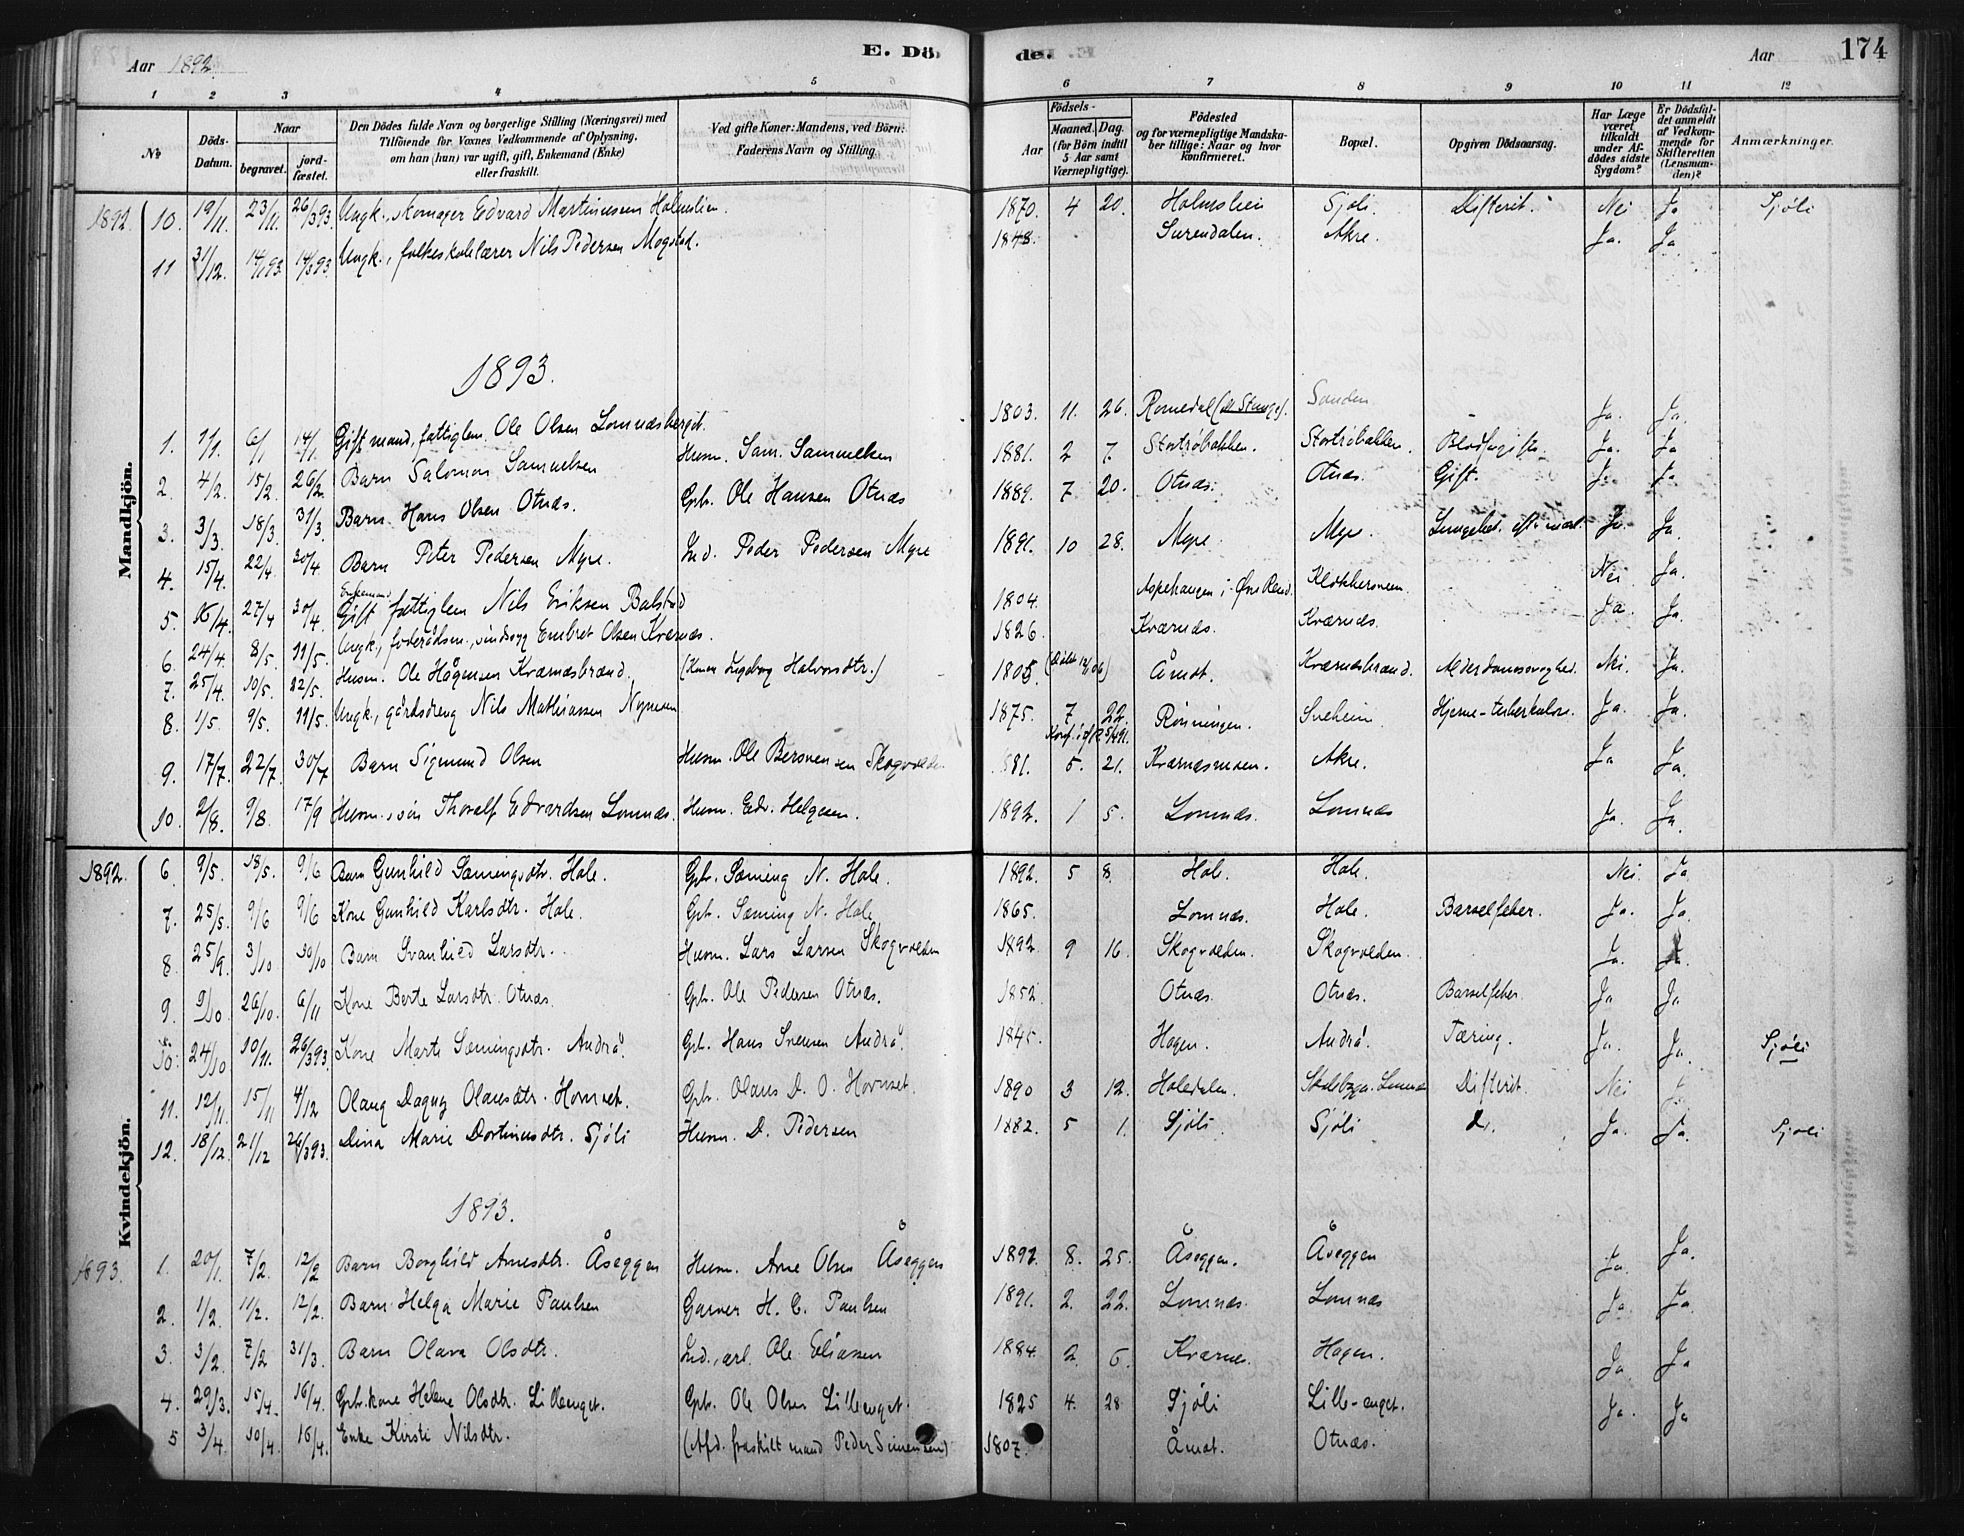 Aar 1892. E. Dö de. Aar 174
1 2 3 4 5 6 7 8 9 10 11 12
№ Döds-Datum. Naar begravet. jord-fæstet. Den Dödes fulde Navn og borgerlige Stilling (Næringsvei) med Tilföiende for Voxnes Vedkommende af Oplysning, om han (hun) var ugift, gift, Enkemand (Enke) eller fraskilt. Ved gifte Koner: Mandens, ved Börn: Faderens Navn og Stilling. Födsels- Aar Maaned. Dag. (for Börn indtil 5 Aar samt Værnepligtige). Födested og for værnepligtige Mandskaber tillige: Naar og hvor konfirmeret. Bopæl. Opgiven Dödsaarsag. Har Læge været tilkaldt under Afdödes sidste Sygdom? Er Dödsfaldet anmeldt af Vedkommende for Skifteretten (Lensmanden)? Anmærkninger.
Mandkjön.
1892. 10. 19/11. 23/11. 26/3 93. Ungk., skomager Edvard Martinussen Holmslien. 1870. 4 20. Holmslien Sjöli. Difterit. Nei Ja Sjöli
11 31/12. 14/1 93. 14/3 93. Ungk., folkeskolelærer Nils Pedersen Mogstad. 1848. Surendalen. Akre. Ja. Ja
1893.
1. 1/1. 6/1 14/1. Gift mand, fattiglem Ole Olsen Lomnæsberget. 1803. 11. 26. Romedal (el. Stange). Sanden Ja. Ja.
2. 4/2. 15/2. 26/2. Barn Salomon Samuelsen Husm. Sam. Samuelsen 1881. 2 7 Stortröbakken. Stortröbakken. Blodforgiftn. Ja. Ja
3. 3/3. 18/3. 31/3. Barn Hans Olsen Otnæs. Gbr. Ole Hansen Otnæs 1889. 7 20. Otnæs. Otnæs. Gift. Ja. Ja
4. 15/4. 22/4. 30/4. Barn Peter Pedersen Myre. Ind. Peder Pedersen Myre 1891. 10 28. Myre. Myre. Ja. Ja.
5. 16/4. 27/4 30/4. Enkemand Gift fattiglem Nils Eriksen Balstad 1804. Aspehaugen i Øvre Rend. Klokkersveen. Nei Ja.
6. 24/4. 8/5. 11/5. Ungk., föderådsm., sindssyg Embret Olsen Kværnæs. 1826. Kværnæs. Kværnæs. Ja. Ja.
7. 25/4. 10/5. 22/5. Husm. Ole Hågensen Kværnæsbrænd. (Konen Ingeborg Halvorsdtr.) 1805. Åmot. Kværnæsbrænd. Alderdomssvaghed. Nei. Ja.
8. 1/5. 9/5. 11/5. Ungk., gårdsdreng Nils Mathiassen Nymoen 1875. 7 22. Rönningen. Sveheim Hjerne-tuberkulose. Ja. Ja.
9. 17/7. 22/7. 30/7 Barn Sigmund Olsen Husm. Ole Bersvensen Skogvolden 1881. 5. 21. Kværnæsmoen. Akre. Ja Ja.
10. 2/8. 9/8. 17/9 Husm., sön Thoralf Edvardsen Lomnæs. Husm. Edv. Helgesen. 1892. 1 5. Lomnæs. Lomnæs Ja. Ja.
Kvindekjön.
1892. 6. 9/5. 18/5. 9/6 Barn Gunhild Sæmingsdtr. Hole. Gbr. Sæming N. Hole. 1892. 5 8. Hole. Hole. Nei. Ja
7. 25/5. 9/6 9/6 Kone Gunhild Karlsdtr. Hole. Gbr. Sæming N. Hole 1865. Lomnæs. Hole. Barselfeber. Ja. Ja.
8. 25/9. 3/10 30/10 Barn Svanhild Larsdtr. Husm. Lars Larsen Skogvolden 1892 9 16. Skogvolden. Skogvolden. Ja. Ja.
9. 9/10. 26/10. 6/11 Kone Berte Larsdtr. Otnæs. Gbr. Ole Pedersen Otnæs. 1852. Otnæs. Otnæs. Barselfeber. Ja Ja
10. 24/10 10/11. 26/3 93. Kone Marte Sæmingsdtr. Andrå. Gbr. Hans Svensen Andrå. 1845. Hagen. Andrå. Tæring. Ja. Ja. Sjöli
11. 12/11. 15/11 4/12 Olaug Dagny Olavsdtr. Hornset. Gbr. Olaus D. O. Hornset. 1890 3 12. Holedalen. Difterit. Nei Ja
12. 18/12. 21/12 26/3 93. Dina Marie Dortinusdtr. Sjöli Husm. D. Pedersen 1882. 5 1. Sjöli. Sjöli d. Ja. Ja. Sjöli
1893.
1893. 1. 20/1. 7/2. 12/2 Barn Borghild Arnesdtr. Åseggen Husm. Arne Olsen Åseggen 1892. 8. 25. Åseggen. Åseggen Ja. Ja.
2. 1/2. 11/2. 12/2. Barn Helga Marie Paulsen Garver H. C. Paulsen 1891. 2. 22. Lomnæs. Lomnæs Ja. Ja.
3. 3/2. 7/2 31/3. Barn Olava Olsdtr. Ind., arb. Ole Eliassen 1884. 2. 6. Kværnes. Hagen. Ja Ja
4. 29/3. 15/4. 16/4. Gbr.kone Helene Olsdtr. Lilleenget. Gbr. Ole Olsen Lilleenget. 1825 4. 28 Sjöli Lille-enget. Ja. Ja
5 3/4. 10/4. 16/4. Enke Kirsti Nilsdtr. (Afd. fraskilt mand Peder Simensen) 1807. Åmot. Otnæs.